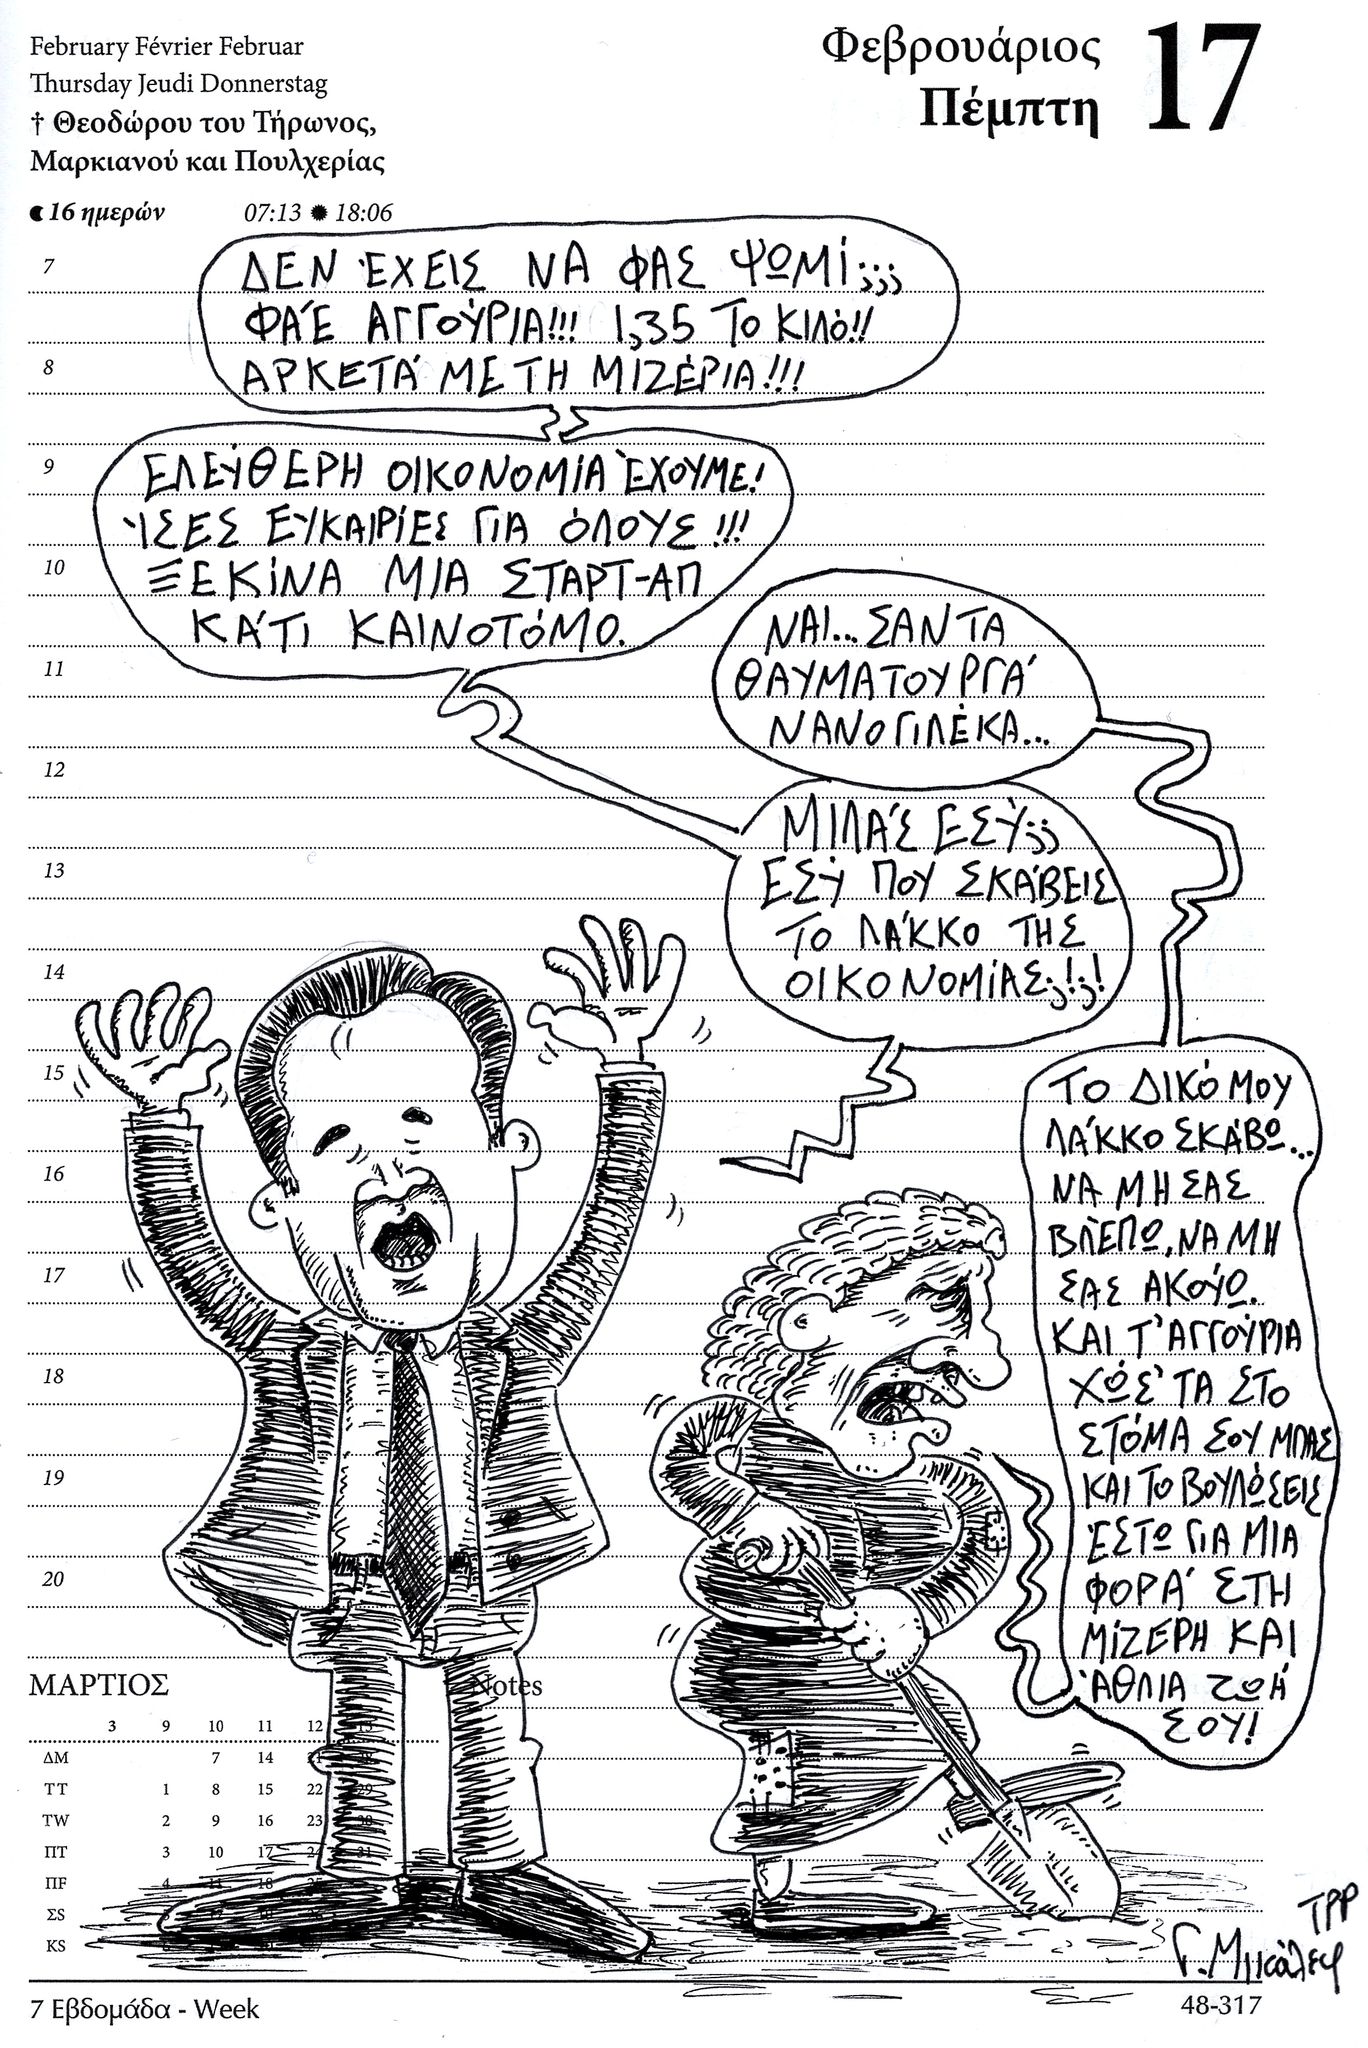 February Février Februar
Thursday Jeudi Donnerstag
† Θεοδώρου του Τήρωνος,
Μαρκιανού και Πουλχερίας
Φεβρουάριος
Πέμπτη
17
16 ημερών 07:13 18:06
7
8
9
10
11
12
13
14
15
16
17
18
19
20
ΔΕΝ ΈΧΕΙΣ ΝΑ ΦΑΣ ΨΩΜΊ;;;
ΦΆΕ ΑΓΓΟΎΡΙΑ!!! 1,35 ΤΟ ΚΙΛΌ!!
ΑΡΚΕΤΆ ΜΕ ΤΗ ΜΙΖΈΡΙΑ!!!
ΕΛΕΎΘΕΡΗ ΟΙΚΟΝΟΜΊΑ ΈΧΟΥΜΕ!
ΊΣΕΣ ΕΥΚΑΙΡΊΕΣ ΓΙΑ ΌΛΟΥΣ!!!
ΞΕΚΊΝΑ ΜΙΑ ΣΤΑΡΤ-ΑΠ
ΚΆΤΙ ΚΑΙΝΟΤΌΜΟ.
ΝΑΙ... ΣΑΝ ΤΑ
ΘΑΥΜΑΤΟΥΡΓΆ
ΝΑΝΟΓΙΛΈΚΑ...
ΜΙΛΆΣ ΕΣΎ;;
ΕΣΎ ΠΟΥ ΣΚΆΒΕΙΣ
ΤΟ ΛΆΚΚΟ ΤΗΣ
ΟΙΚΟΝΟΜΊΑΣ;!;!
ΤΟ ΔΙΚΌ ΜΟΥ
ΛΆΚΚΟ ΣΚΆΒΩ...
ΝΑ ΜΗ ΣΑΣ
ΒΛΈΠΩ, ΝΑ ΜΗ
ΣΑΣ ΑΚΟΎΩ.
ΚΑΙ Τ'ΑΓΓΟΎΡΙΑ
ΧΏΣ'ΤΑ ΣΤΟ
ΣΤΌΜΑ ΣΟΥ ΜΠΑΣ
ΚΑΙ ΤΟ ΒΟΥΛΏΣΕΙΣ
ΈΣΤΩ ΓΙΑ ΜΙΑ
ΦΟΡΆ ΣΤΗ
ΜΊΖΕΡΗ ΚΑΙ
ΆΘΛΙΑ ΖΩΉ
ΣΟΥ!
ΜΑΡΤΙΟΣ
Notes
3 9 10 11 12 13
ΔΜ 7 14 21 28
ΤΤ 1 8 15 22 29
ΤW 2 9 16 23 30
ΠΤ 3 10 17 24 31
ΠF 4 11 18 25
ΣS
KS
TPP
Γ. Μικάλεφ
7 Εβδομάδα - Week
48-317